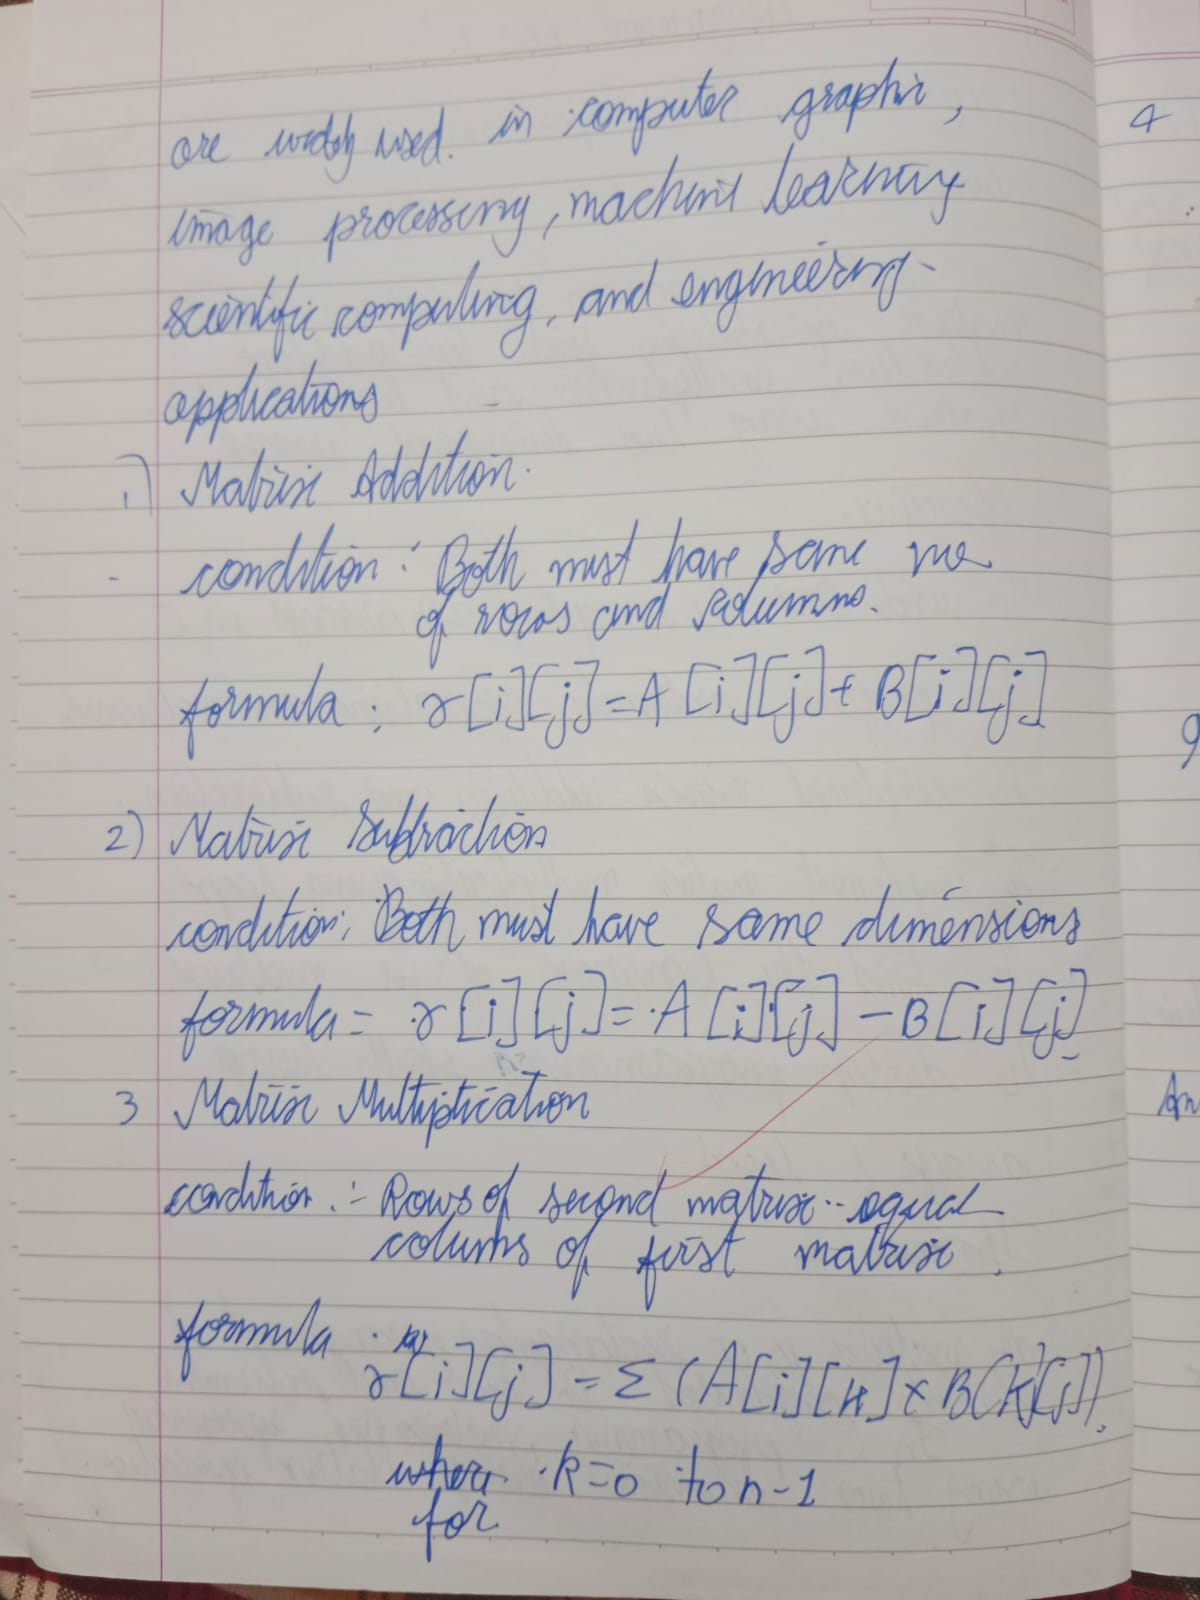 are widely used. in computer graphic,
image processing, machine learning
scientific computing, and engineering
applications
1) Matrix Addition.
condition: Both must have same no
of rows and columns.
formula: r[i][j] = A[i][j] + B[i][j]
2) Matrix Subtraction
condition: Both must have same dimensions
formula = r[i][j] = A[i][j] - B[i][j]
3 Matrix Multiplication
condition :- Rows of second matrix equal
colums of first matrix.
formula :
r[i][j] = Σ (A[i][k] × B[k][j]).
where k=0 to n-1
for
4
9
An